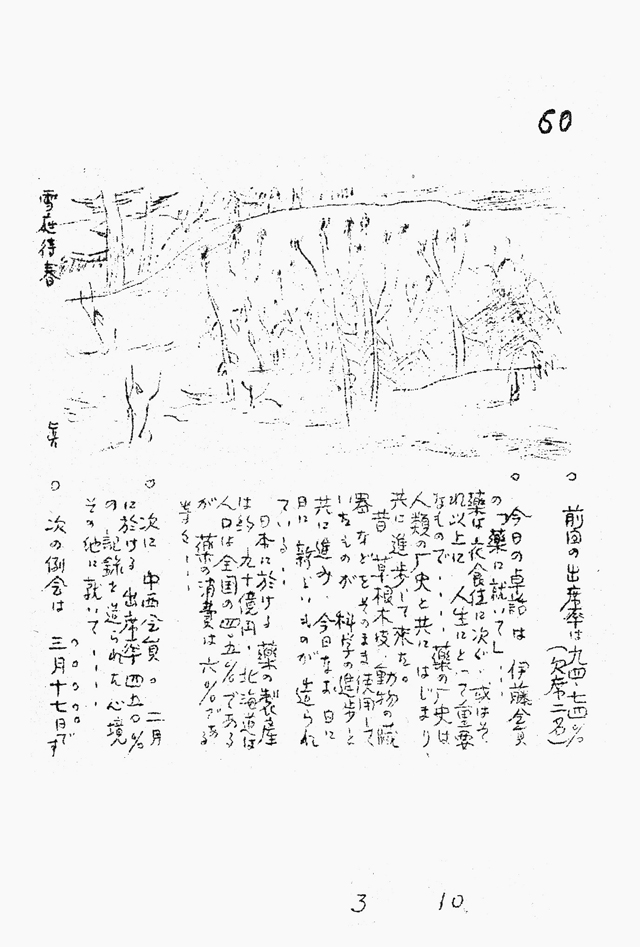 60
雪在待春
○ 前回の出席率は九四・七四%
(欠席二名)
○ 今日の卓話は 伊藤会員
の「薬に就いて」……
薬は衣食住に次ぐ、或はそ
れ以上に人生にとって重要
なもので‥‥薬の歴史は
人類の歴史と共にはじまり、
共に進歩して来た。
昔 草根木皮、動物の臓
器などをそのまま使用して
いたものが 科学の進歩と
共に進み 今日なお 日に
日に新しいものが 造られ
ている‥‥
日本に於ける 薬の製産
は約 九十億円、北海道は
人口は全国の四・五%である
が 薬の消費は 六%である
等々‥‥
○ 次に 中西会員。二月
に於ける 出席率 四五〇%
の記録を造られた心境
その他に就いて‥‥
○ 次の例会は 三月十七日です
3 10